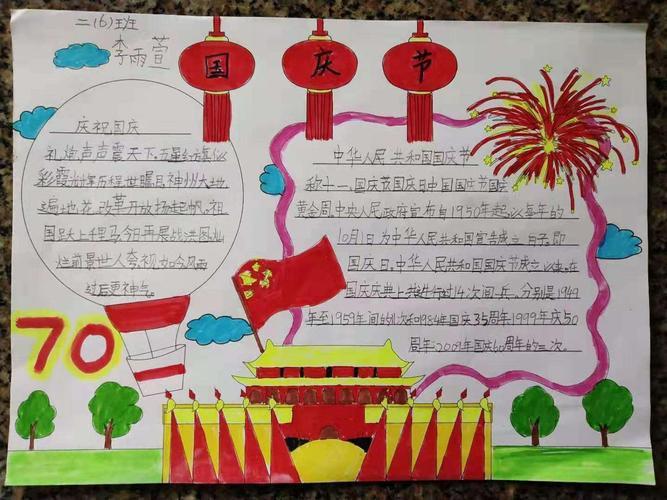 二（6）班
李雨萱
国庆节
庆祝国庆
礼炮声声震天下.五星红旗似
彩霞.光辉历程世瞩目.神州大地
遍地花.改革开放扬起帆.祖
国跃上千里马.今日再展战洪图灿
烂前景世人夸.视如今风雨
过后更神气.
70
中华人民共和国国庆节
称十一、国庆节国庆日中国国庆节国庆
黄金周.中央人民政府宣布自1950年起.以每年的
10月1日为中华人民共和国宣告成立日子.即
国庆日.中华人民共和国国庆节成立以来.在
国庆庆典上共进行过14次阅兵.分别是1949
年至1959年间的11次和1984年国庆35周年1999年庆50
周年2009年国庆60周年的三次。